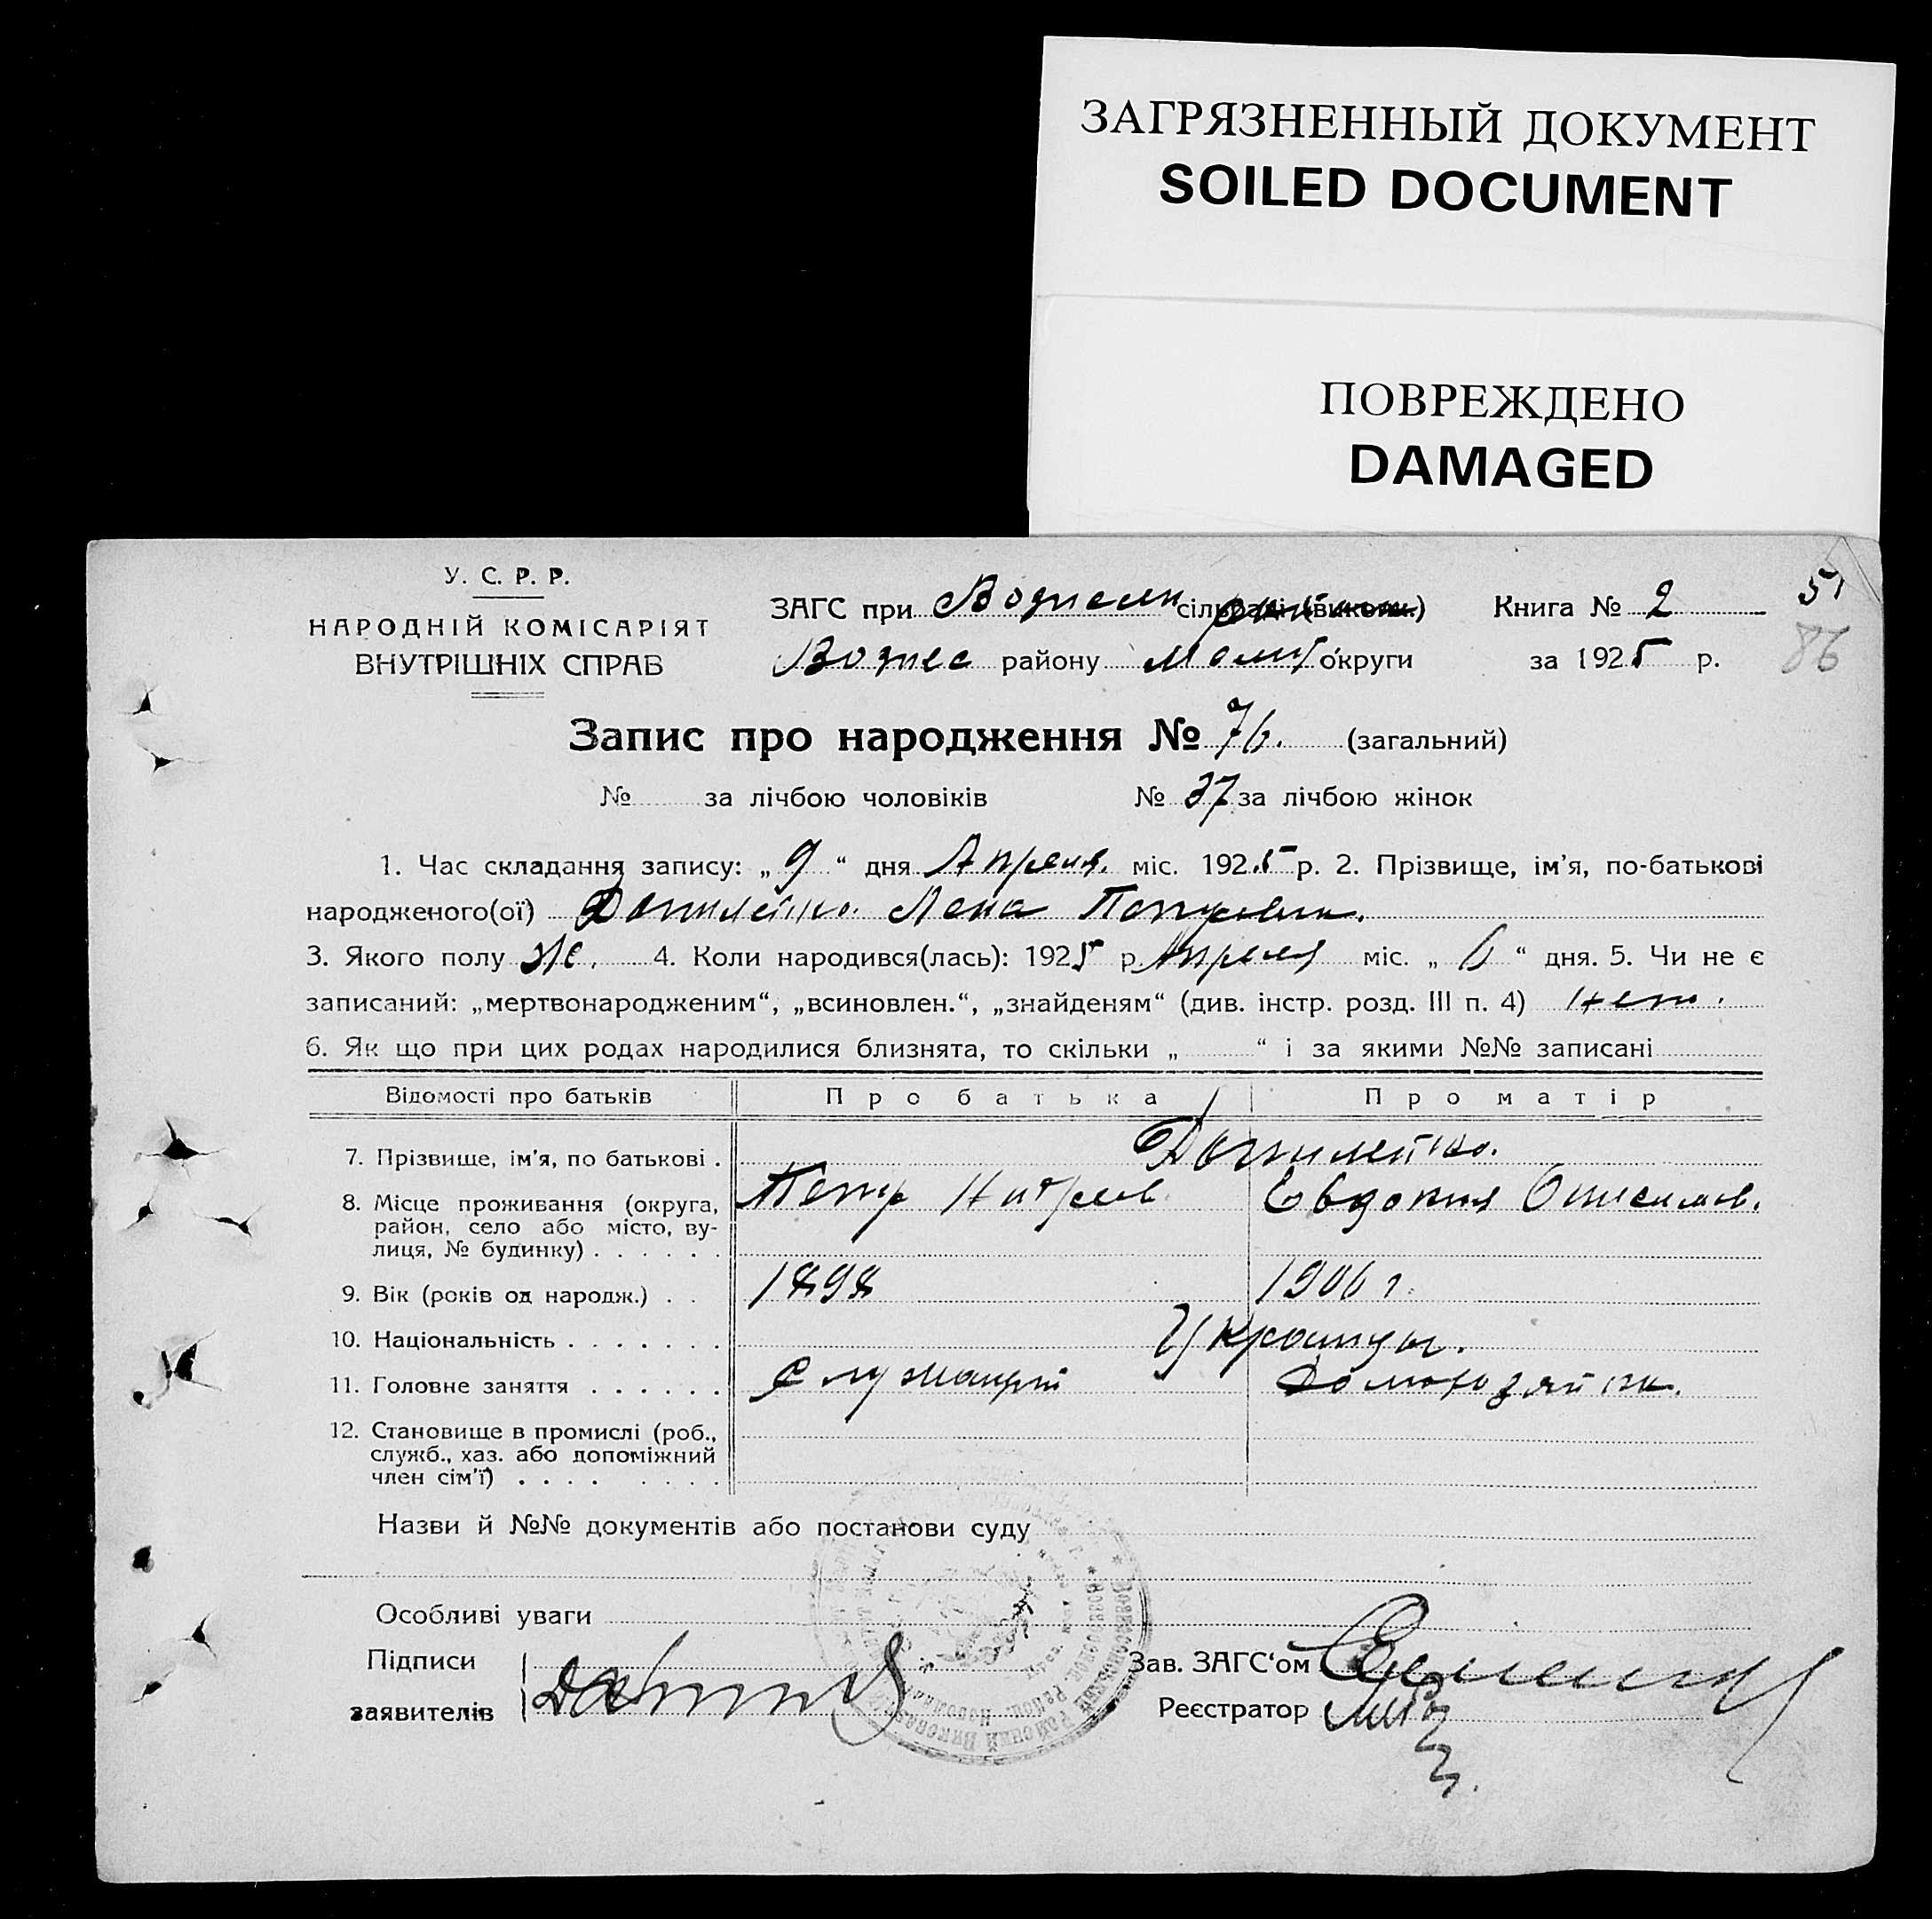 ЗАГРЯЗНЕННЫЙ ДОКУМЕНТ
SOILED DOCUMENT
ПОВРЕЖДЕНО
DAMAGED
У. С. Р. Р.
НАРОДНІЙ КОМІСАРІЯТ
ВНУТРІШНІХ СПРАВ
ЗАГС при сільради (викони.) Книга № 2
86
Вознес району округи за 1925 р.
Запис про народження № 76. (загальний)
№ за лічбою чоловіків № 37 за лічбою жінок
1. Час складання запису: „ 9 “ дня Апреля міс. 1925 р. 2. Прізвище, ім’я, по-батькові
народженого(ої) Лена
3. Якого полу Же. 4. Коли народився(лась): 1925 р. Апреля міс. „ 6 “ дня. 5. Чи не є
записаний: „мертвонародженим“, „всиновлен.“, „знайденям“ (див. інстр. розд. III п. 4) нет.
6. Як що при цих родах народилися близнята, то скільки „ “ і за якими №№ записані
Відомості про батьків Про батька Про матір
7. Прізвище, ім’я, по батькові .
8. Місце проживання (округа, Петр Евдокия Онисимов.
район, село або місто, ву-
лиця, № будинку) . . . . . .
9. Вік (років од народж.) . . 1898 1906 г.
10. Національність . . . . . . . Украинцы.
11. Головне заняття . . . . . . Служащий Домохозяйка.
12. Становище в промислі (роб.,
служб., хаз. або допоміжний
член сім’ї) . . . . . . . .
Назви й №№ документів або постанови суду
Особливі уваги
Підписи Зав. ЗАГС‘ом
заявителів Реєстратор